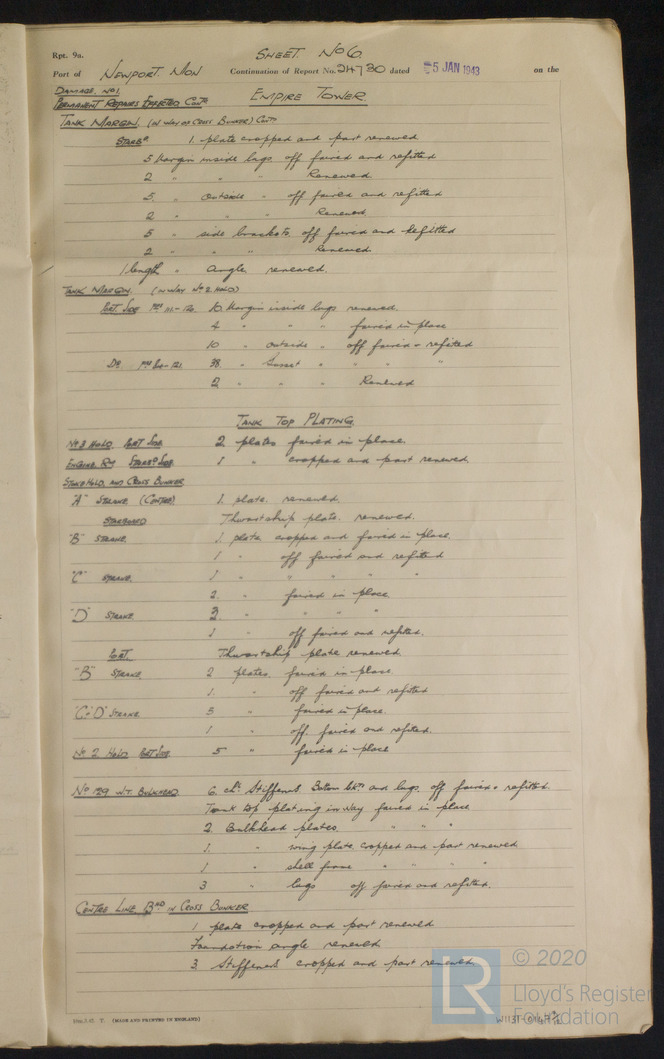 Rpt. 9a. SHEET. No 6.
Port of NEWPORT. MON Continuation of Report No. 24730 dated 5 JAN 1943 on the
DAMAGE. No 1.
PERMANENT REPAIRS EFFECTED. CONTD EMPIRE TOWER.
TANK MARGIN. (IN WAY OF CROSS BUNKER) CONTD
STARBD 1 plate cropped and part renewed
5 Margin inside lugs off faired and refitted
2 " " " Renewed
5. " outside " off faired and refitted
2 " " " Renewed
5 " side brackets. off faired and Refitted
2 " " " Renewed
1 length " angle. renewed.
TANK MARGIN. (IN WAY No 2 HOLD)
PORT SIDE 10 Margin inside lugs renewed.
4 " " " faired in place
10 " outside " off faired & refitted
Do 38. " " " " "
2 " " " Renewed
TANK TOP PLATING
No 3 HOLD. PORT SIDE. 2 plates faired in place.
ENGINE RM STARBD SIDE. 1 " cropped and part renewed.
HOLD AND CROSS BUNKER
"A" STRAKE (CENTRE) 1. plate. renewed.
STARBOARD Thwartship plate. renewed.
"B" STRAKE. 1. plate cropped and faired in place.
1 " off faired and refitted
"C" STRAKE. 1 " " " " "
2. " faired in place
"D" STRAKE 2. " " " "
1 " off faired and refitted.
PORT. Thwartship plate renewed.
"B" STRAKE 2 plates. faired in place.
1. " off faired and refitted
"C & D" STRAKE 3 " faired in place.
1 " off faired and refitted.
No 2 HOLD PORT SIDE. 5 " faired in place
No 129 W.T. BULKHEAD. 6. chl Stiffeners Bottom bkts and lugs off faired & refitted.
Tank top plating in way faired in place
2. Bulkhead plates " " "
1. " wing plate. cropped and part renewed
1 " shell frame " " " "
3 " lugs off faired and refitted.
CENTRE LINE BHD IN CROSS BUNKER
1 plate cropped and part renewed
Foundation angle renewed
3. Stiffeners cropped and part renewed
(MADE AND PRINTED IN ENGLAND)
LR © 2020
Lloyd's Register
Foundation